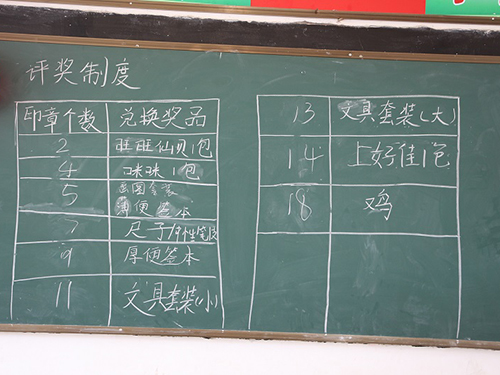 评奖制度
印章个数 兑换奖品
2 旺旺仙贝1包
4 咪咪1包
5 画图套装
薄便签本
7 尺子/
9 厚便签本
11 文具套装(小)
13 文具套装(大)
14 上好佳1包
18 鸡